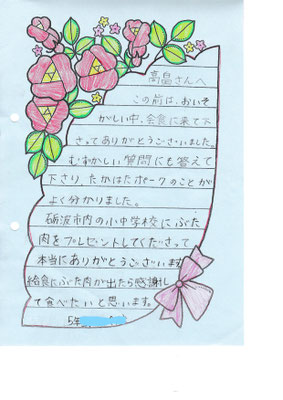 高畠さんへ
この前は、おいそ
がしい中、会食に来て下
さってありがとうございました。
むずかしい質問にも答えて
下さり、たかはたポークのことが
よく分かりました。
砺波市内の小中学校にぶた
肉をプレゼントしてくださって
本当にありがとうございます。
給食にぶた肉が出たら感謝し
て食べたいと思います。
5年